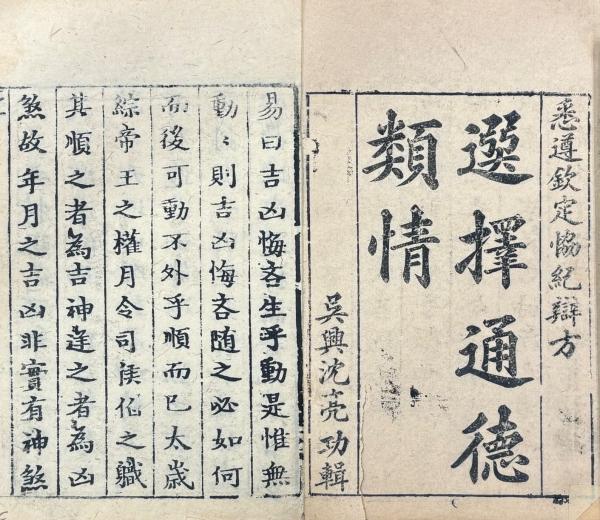 悉遵欽定協紀辯方
選擇通德
類情
吳興沈亮功輯
易曰吉凶悔吝生乎動是惟無
動〻則吉凶悔吝随之必如何
而後可動不外乎順而已太歲
綜帝王之權月令司侯伯之職
其順之者為吉神逢之者為凶
煞故年月之吉凶非實有神煞